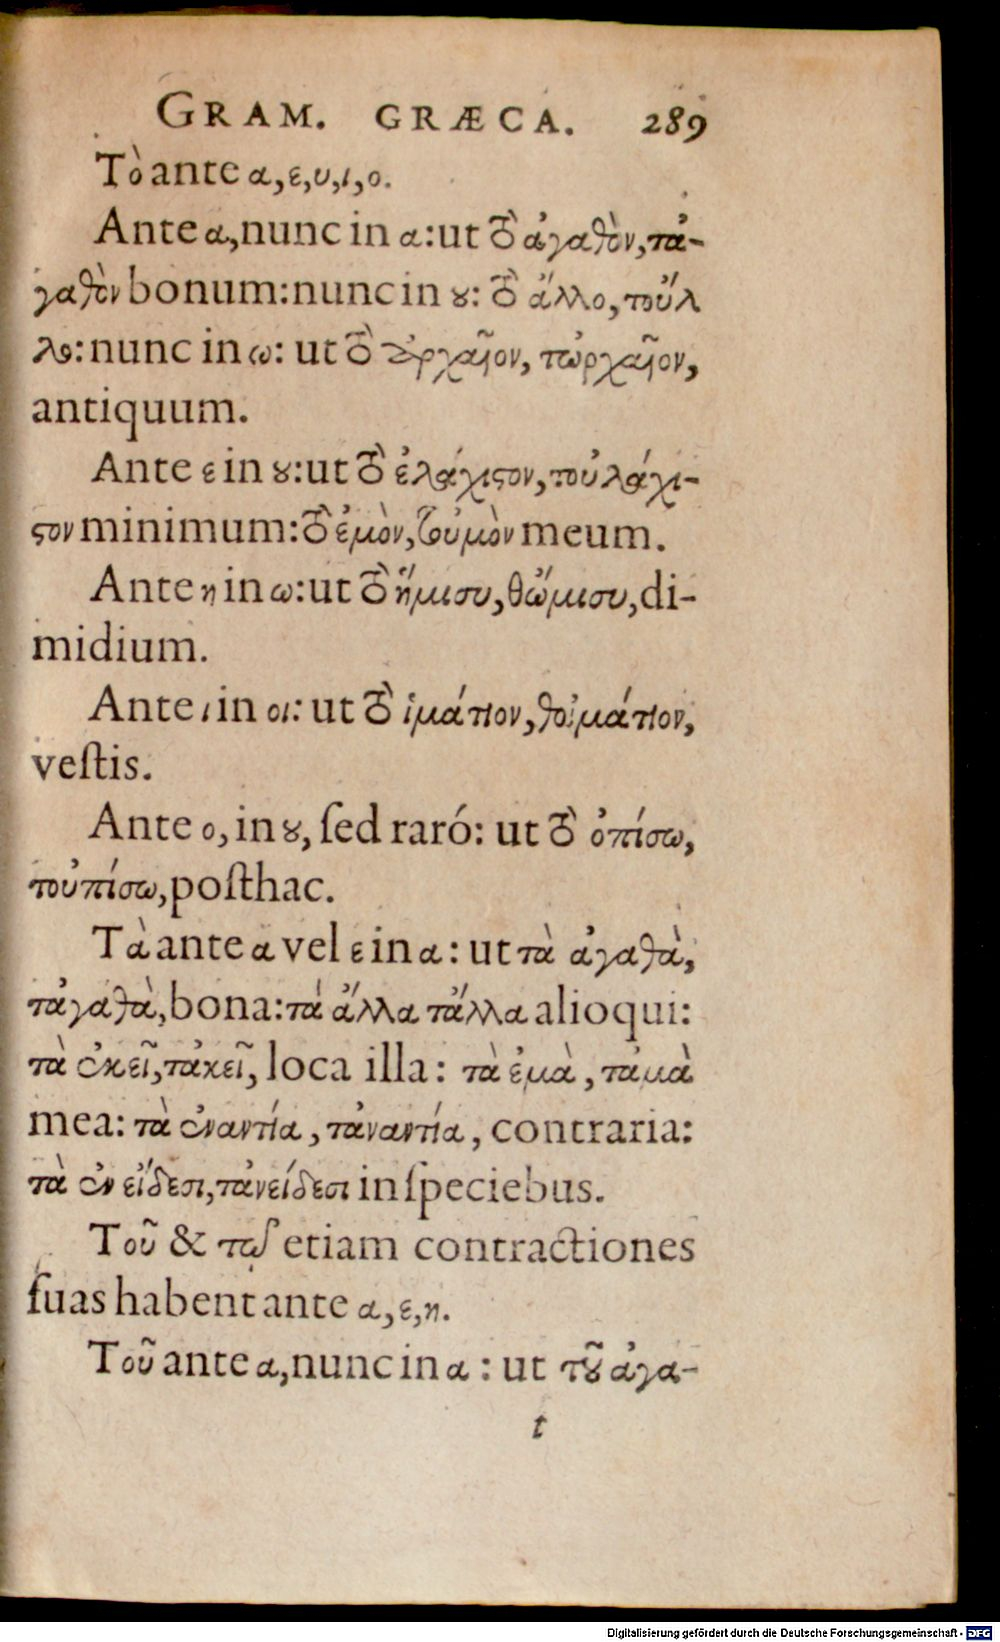 GRAM. GRÆCA. 289
Τὸ ante α, ε, υ, ι, ο.
Ante α, nunc in α: ut τὸ ἀγαθὸν, τἀ-
γαθὸν bonum: nunc in ȣ: τὸ ἄλλο, τοὔλ
λο: nunc in ω: ut τὸ ἀρχαῖον, τὠρχαῖον,
antiquum.
Ante ε in ȣ: ut τὸ ἐλάχιϛον, τοὐλάχι-
ϛον minimum: τὸ ἐμὸν, τοὐμὸν meum.
Ante η in ω: ut τὸ ἥμισυ, θὥμισυ, di-
midium.
Ante ι in οι: ut τὸ ἱμάτιον, θοἰμάτιον,
veſtis.
Ante ο, in ȣ, ſed raró: ut τὸ ὀπίσω,
τοὐπίσω, poſthac.
Τὰ ante α vel ε in α: ut τὰ ἀγαθὰ,
τἀγαθὰ, bona: τὰ ἄλλα τἄλλα alioqui:
τὰ ἐκεῖ, τἀκεῖ, loca illa: τὰ ἐμὰ, τἀμὰ
mea: τὰ ἐναντία, τἀναντία, contraria:
τὰ ἐν εἴδεσι, τἀνείδεσι in ſpeciebus.
Τοῦ & τῷ etiam contractiones
ſuas habent ante α, ε, η.
Τοῦ ante α, nunc in α: ut τȣ͂ ἀγα-
t
Digitalisierung gefördert durch die Deutsche Forschungsgemeinschaft - DFG